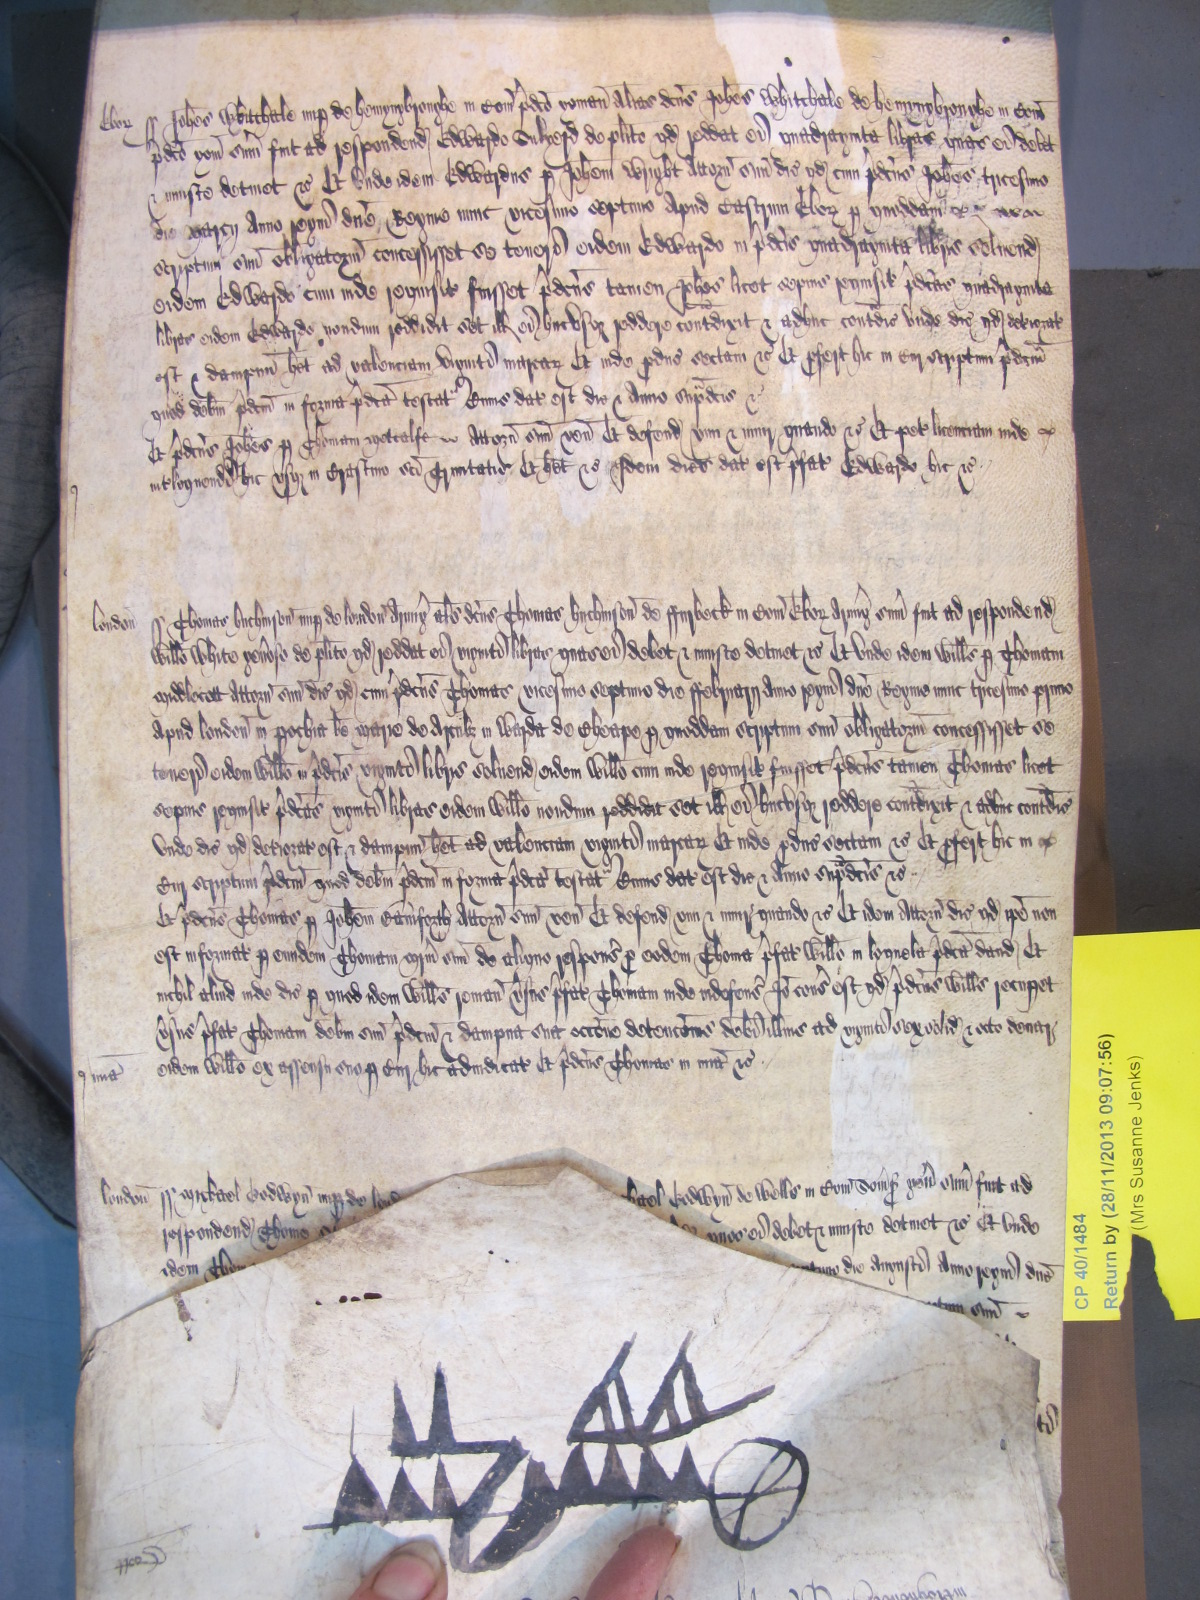 Ebor ss Joh̄es Whitehale nup de hemyngbrughe in Com̄ p̄dco yoman Alias dc̄us Joh̄es Whitehale de hemyngbrughe in Com̄
p̄dco yom̄ sum̄ fuit ad respondend Edwardo de plito qd reddat ei quadraginta libras quas ei debet
& iniuste detinet &c Et unde idem Edwardus p Joh̄em Wright Attorn̄ suū dic qd cum p̄dcus Joh̄es tricesimo
die Marcij Anno regni dn̄i Regis nunc vicesimo septimo Apud Castrum Ebor p quoddam
scriptum suū obligatoriū concessisset se teneri eidem Edwardo in p̄dcis quadraginta libris solvend
eidem Edwardo cum inde requisit fuisset p̄dcus tamen Joh̄es licet sepius requisit p̄dcas quadraginta
libras eidem Edwardo nondum reddidit set ill ei hucusq reddere contradixit & adhuc contradic unde dic qd deteriorat
est & dampnū het ad valenciam viginti marcar Et inde pduc sectam &c Et pfert hic in Cur scriptum p̄dcm̄
quod debm̄ p̄dcm in forma p̄dca testat Cuius dat est die & Anno supdcis &c
Et p̄dcus Joh̄es p Thomam Metcalfe Attorn̄ suū ven̄ Et defend vim & iniur quando &c Et pet licenciam inde
intloquendi hic usq in Crastino sc̄e Trinitatis Et het &c Idem dies dat est p̄fat Edwardo hic &c
london ss Thomas huchinson nup de london Armig̃ als dc̄us Thomas huchinson de in Com̄ Ebor Armig̃ sum̄ fuit ad respondend
Willo White gen̄oso de plito qd reddat ei viginti libras quas ei debet & iniuste detinet &c Et unde idem Will̄s p Thomam
Attorn̄ suū dic qd cum p̄dcus Thomas vicesimo septimo die ffebruarij Anno regni dn̄i Regis nunc tricesimo primo
Apud london̄ in pochia be Marie de Arcub̄z in Warda de Cheape p quoddam scriptum suū obligatoriū concessisset se
teneri eidem Willo in p̄dcis viginti libris solvend eidem Willo cum inde requisit fuisset p̄dcus tamen Thomas licet
sepius requisit p̄dcas viginti libras eidem Willo nondum reddidit set ill ei hucusq reddere contradixit & adhuc contradic
unde dic qd deteriorat est & dampnū het ad valenciam viginti marcar Et inde pduc sectam &c Et pfert hic in
Cur scriptum p̄dcm quod debm̄ p̄dcm in forma p̄dca testat Cuius dat est die & Anno supdcis &c
Et p̄dcus Thomas p Joh̄em Attorn̄ suū ven̄ Et defend vim & iniur quando &c Et idem Attorn̄ dic qd ipe non
est informat p eundem Thomam mgr̄m suū de aliquo respons p eodem Thoma p̄fat Willo in loquela p̄dca dand Et
nichil aliud inde dic p quod idem Will̄s reman v̄sus p̄fat Thomam inde indefens Io cons est qd p̄dcus Will̄s recupet
v̄sus p̄fat Thomam debm̄ suū p̄dcm & dampna sua occōne detencōnis debi illius ad viginti sex solid & octo denar
mīa eidem Willo ex assensu suo p Cur hic adiudicat Et p̄dcus Thomas in mīa &c
london ss Michael Godwyn nup de lon hael Godwyn de Wells in Com̄ Soms̄ gen̄ sum̄ fuit ad
respondend Thome quas ei debet & iniuste detinet &c Et unde
idem Thom die Augusti Anno regni dn̄i
suū
CP 40/1484
Return by (28/11/2013 09:07:56)
(Mrs Susanne Jenks)